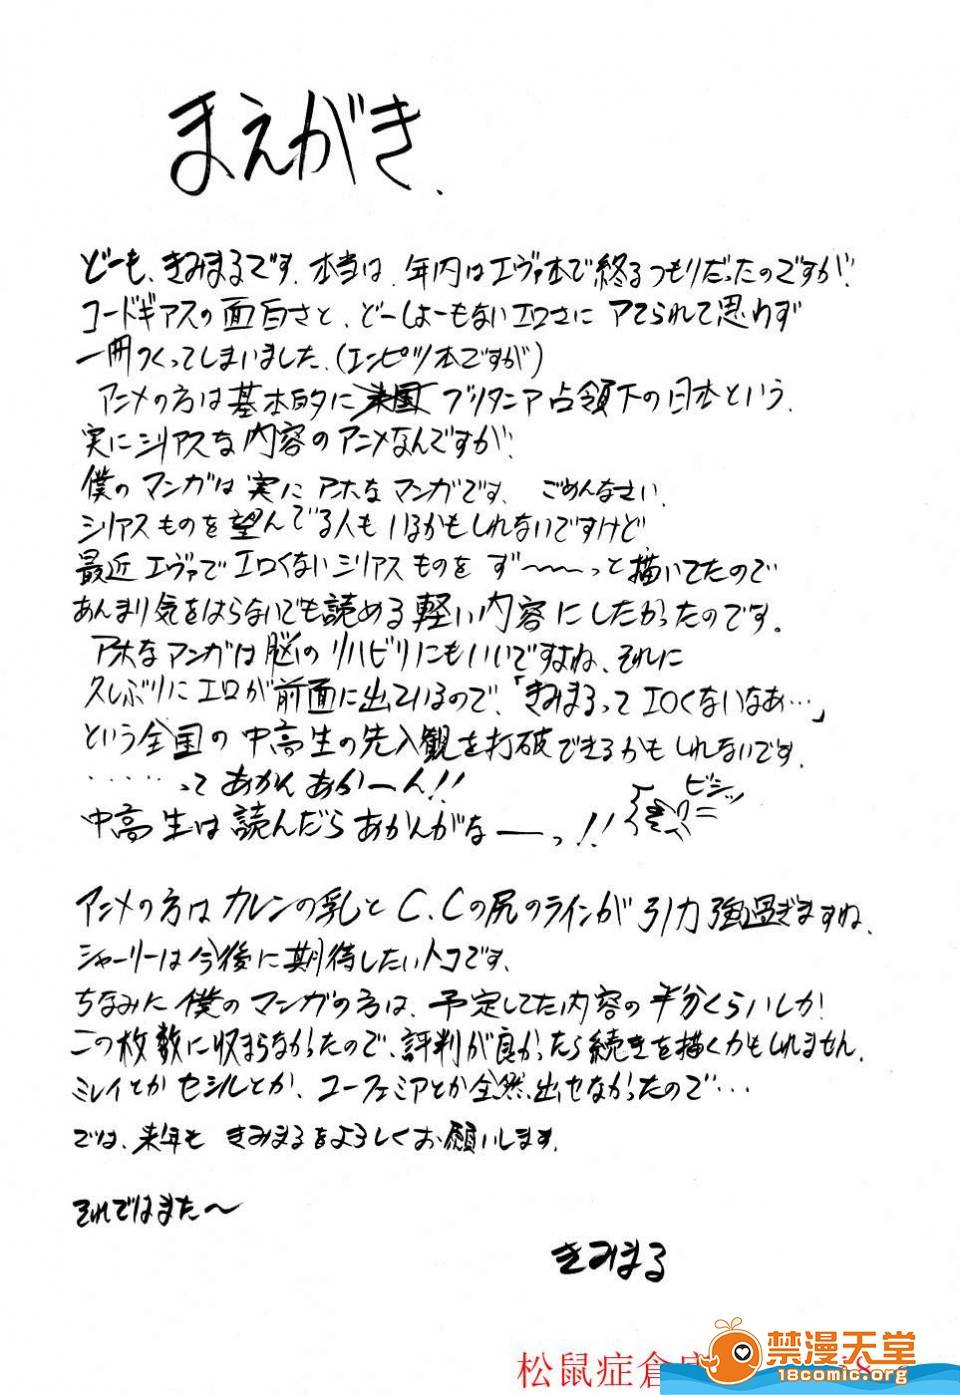 まえがき.
どーも、きみまるです. 本当は. 年内はエヴァ本で終るつもりだったのですが.
コードギアスの面白さと、どーしょーもないエロさに アてられて思わず
一冊つくってしまいました. (エンピツ本ですが)
アニメの方は基本的に ブリタニア占領下の日本という.
実にシリアスな内容のアニメなんですが.
僕のマンガは実に アホなマンガです. ごめんなさい.
シリアスものを望んでる人も いるかもしれないですけど
最近 エヴァでエロくないシリアスものを ず〜〜〜っと描いてたので
あんまり気をはらないでも読める軽い内容にしたかったのです。
アホなマンガは脳のリハビリにもいいですよね、それに
久しぶりにエロが前面に出ているので、「きみまるってエロくないなあ…」
という全国の中高生の先入観を打破できるかもしれないです.
......って あかん あかーん!!
中高生は読んだらあかんがなーっ!! ビシッ
アニメの方はカレンの乳とC.Cの尻のラインが引力強過ぎますね.
シャーリーは今後に期待したいトコです.
ちなみに僕のマンガの方は、予定してた内容の半分くらいしか!
この枚数に収まらなかったので、評判が良かったら続きを描くかもしれません.
ミレイとかセシルとか、ユーフェミアとか全然出せなかったので…
では、来年も きみまるをよろしくお願いします.
それではまた〜
きみまる
禁漫天堂
18comic.org
松鼠症倉